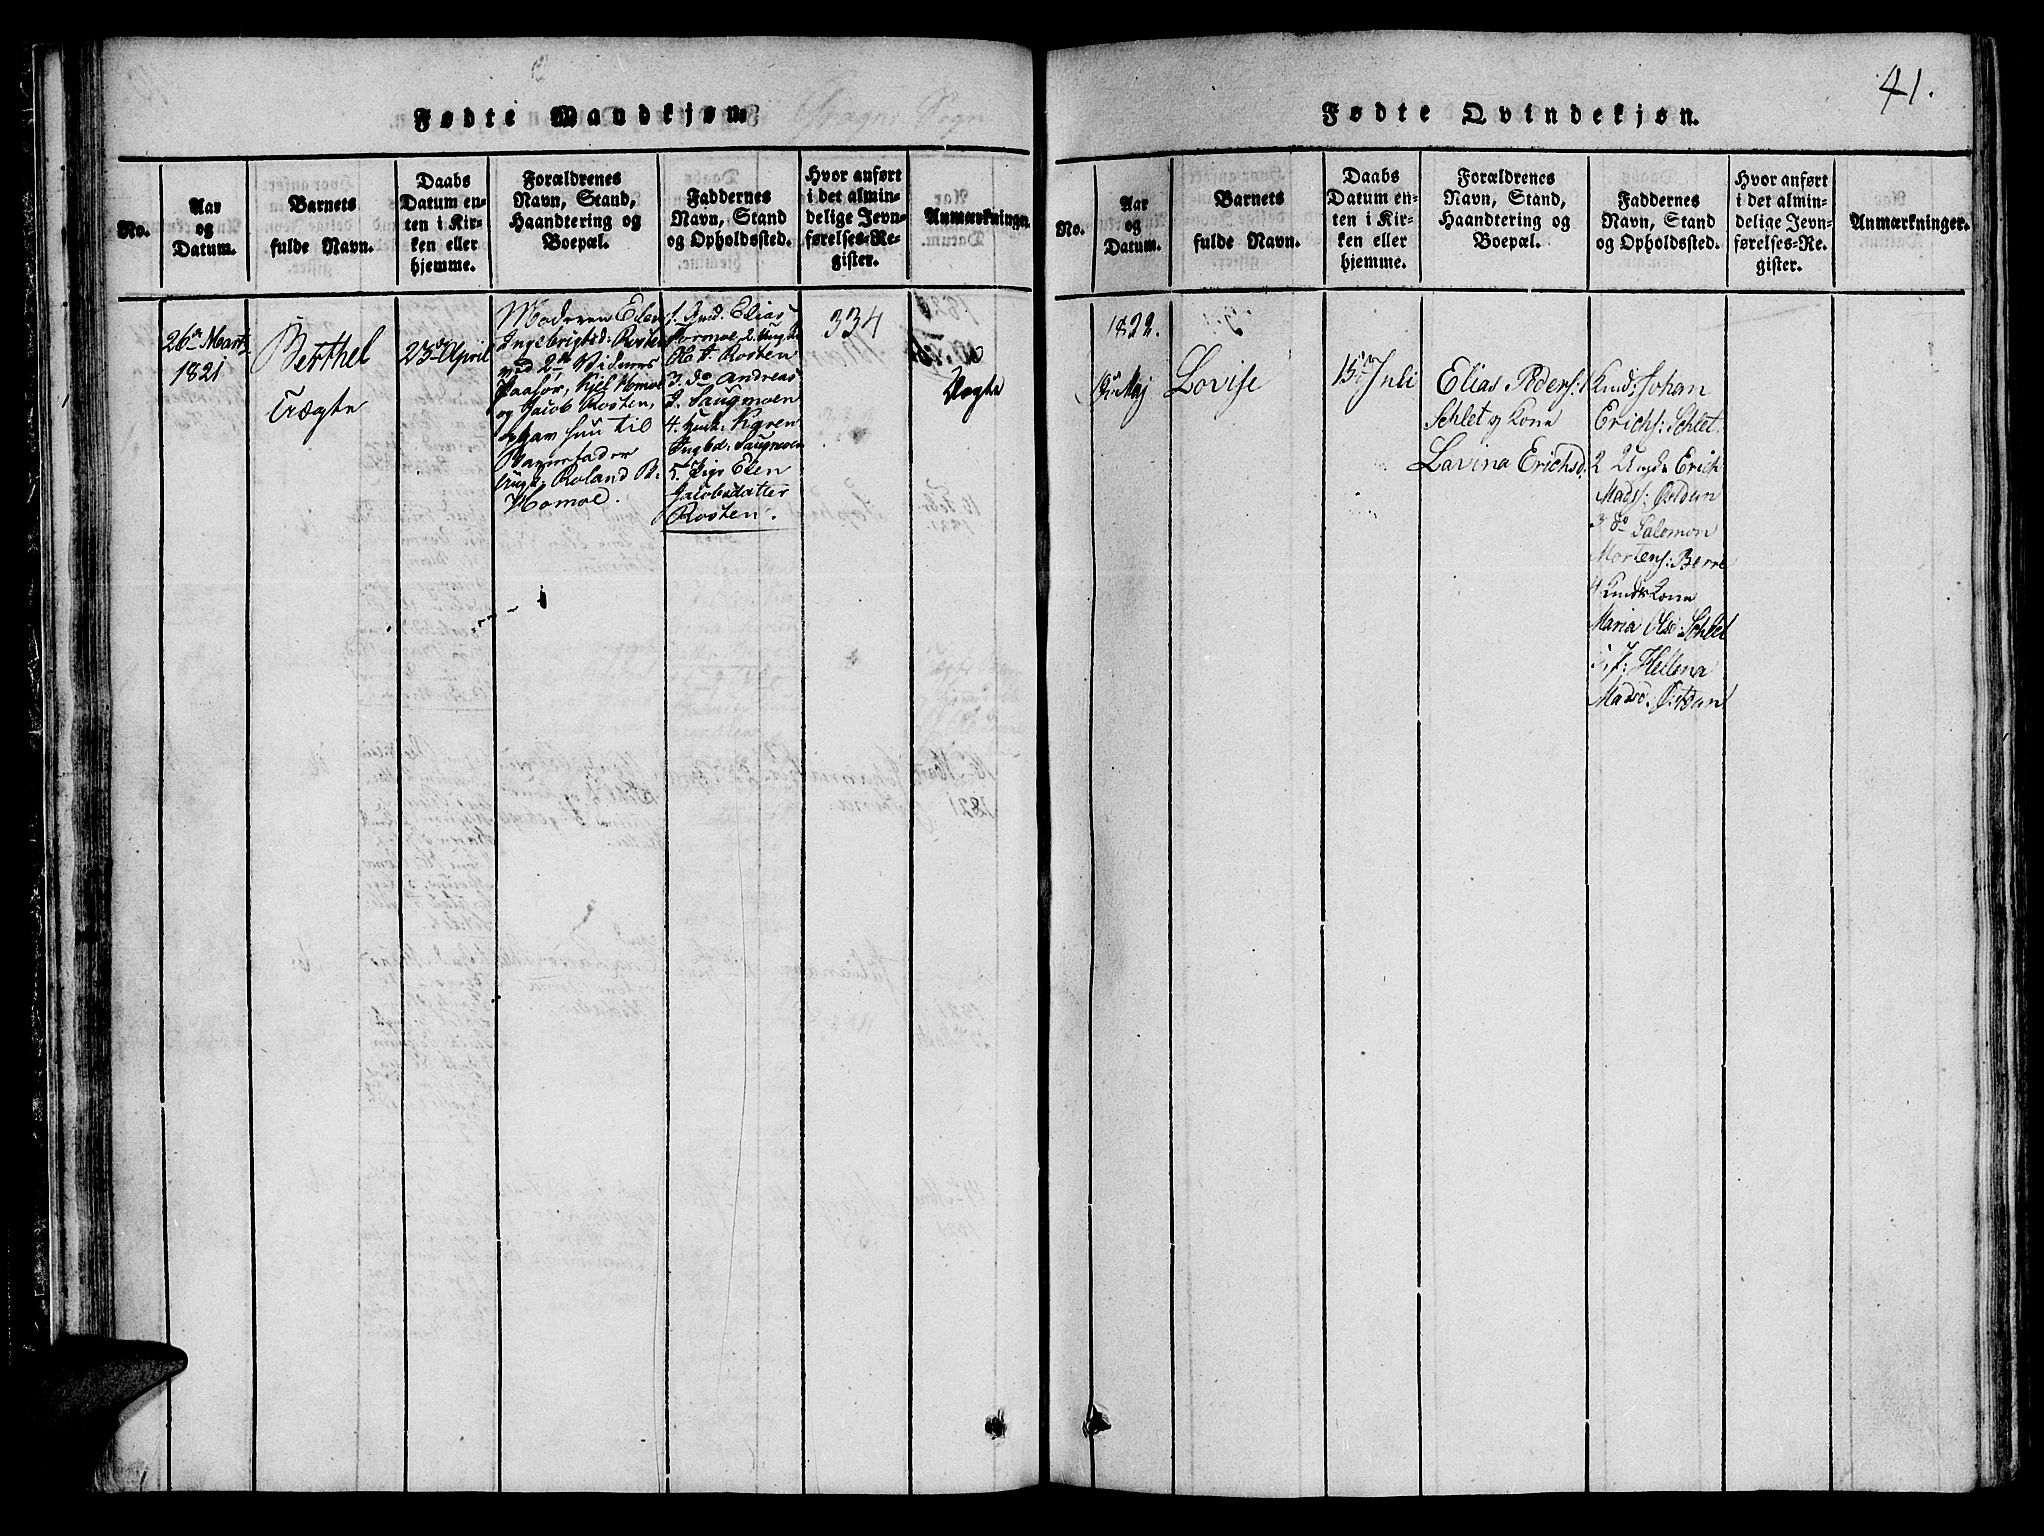 41.
Fødte Mandkjøn.
Fragn Sogn
Fødte Qvindekjøn.
No.
Aar
og
Datum.
Barnets
fulde Navn.
Daabs
Datum en-
ten i Kir-
ken eller
hjemme.
Forældrenes
Navn, Stand,
Haandtering og
Boepæl.
Faddernes
Navn, Stand
og Opholdssted.
Hvor anført
i det almin-
delige Jevn-
førelses-Re-
gister.
Anmærkninger.
26de Marts
1821
Berthel
23de April
Moderen Elen
Ingebrigtsd: Rosten
med 2de Vidners
Paasør, Kjel Homoe
og Jacob Rosten,
til
Barnefader
Roland B:
Homoe.
1. Gmd. Elias
Formoe 2. Ungk:
Rosten
3. do Andreas
J. Saugmoen
4. Karen
Ingbd: Saugmoen
5. Pige Elen
Jacobsdatter
Rosten.
334
Uægte
No.
Aar
og
Datum.
Barnets
fulde Navn.
Daabs
Datum en-
ten i Kir-
ken eller
hjemme.
Forældrenes
Navn, Stand,
Haandtering og
Boepæl.
Faddernes
Navn, Stand
og Opholdssted.
Hvor anført
i det almin-
delige Jevn-
førelses-Re-
gister.
Anmærkninger.
1822.
Maj
Lovise
15de Juli
Elias Peders:
Schlet og Kone
Lavina Erichsd.
Johan
Erichs: Schlet
2 Ungk Erich
Mads:
3 do Salomon
Mortens: Berre
4 Kone
Maria Olsd: Schlet
Hellena
Madsd: